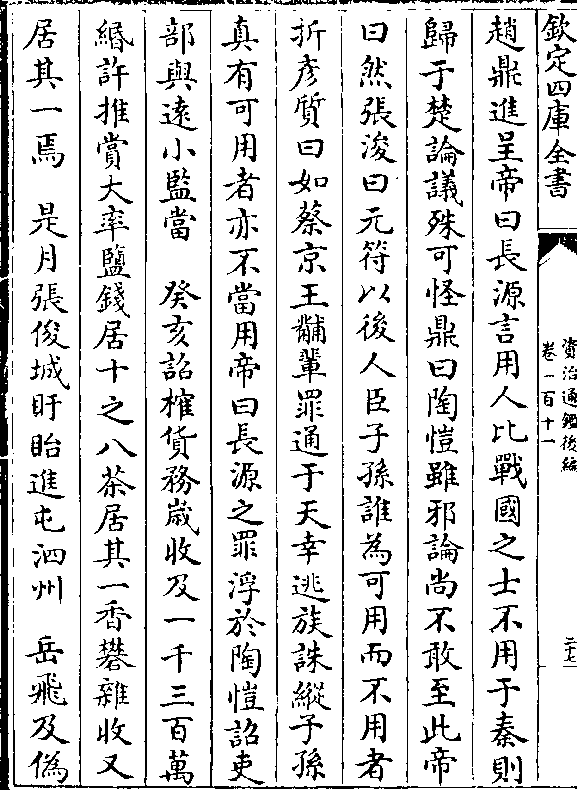 欽定四庫全書
資治通鑑後編
卷一百十一
二十七
趙鼎進呈帝曰長源言用人比戰國之士不用于秦則
歸于楚論議殊可怪鼎曰陶愷雖邪論尚不敢至此帝
曰然張浚曰元符以後人臣子孫誰為可用而不用者
折彦質曰如蔡京王黼輩罪通于天幸逃族誅縱子孫
真有可用者亦不當用帝曰長源之罪浮於陶愷詔吏
部與遠小監當　癸亥詔榷貨務歲收及一千三百萬
緡許推賞大率鹽錢居十之八茶居其一香礬雜收又
居其一焉　是月張俊城盱眙進屯泗州　岳飛及偽